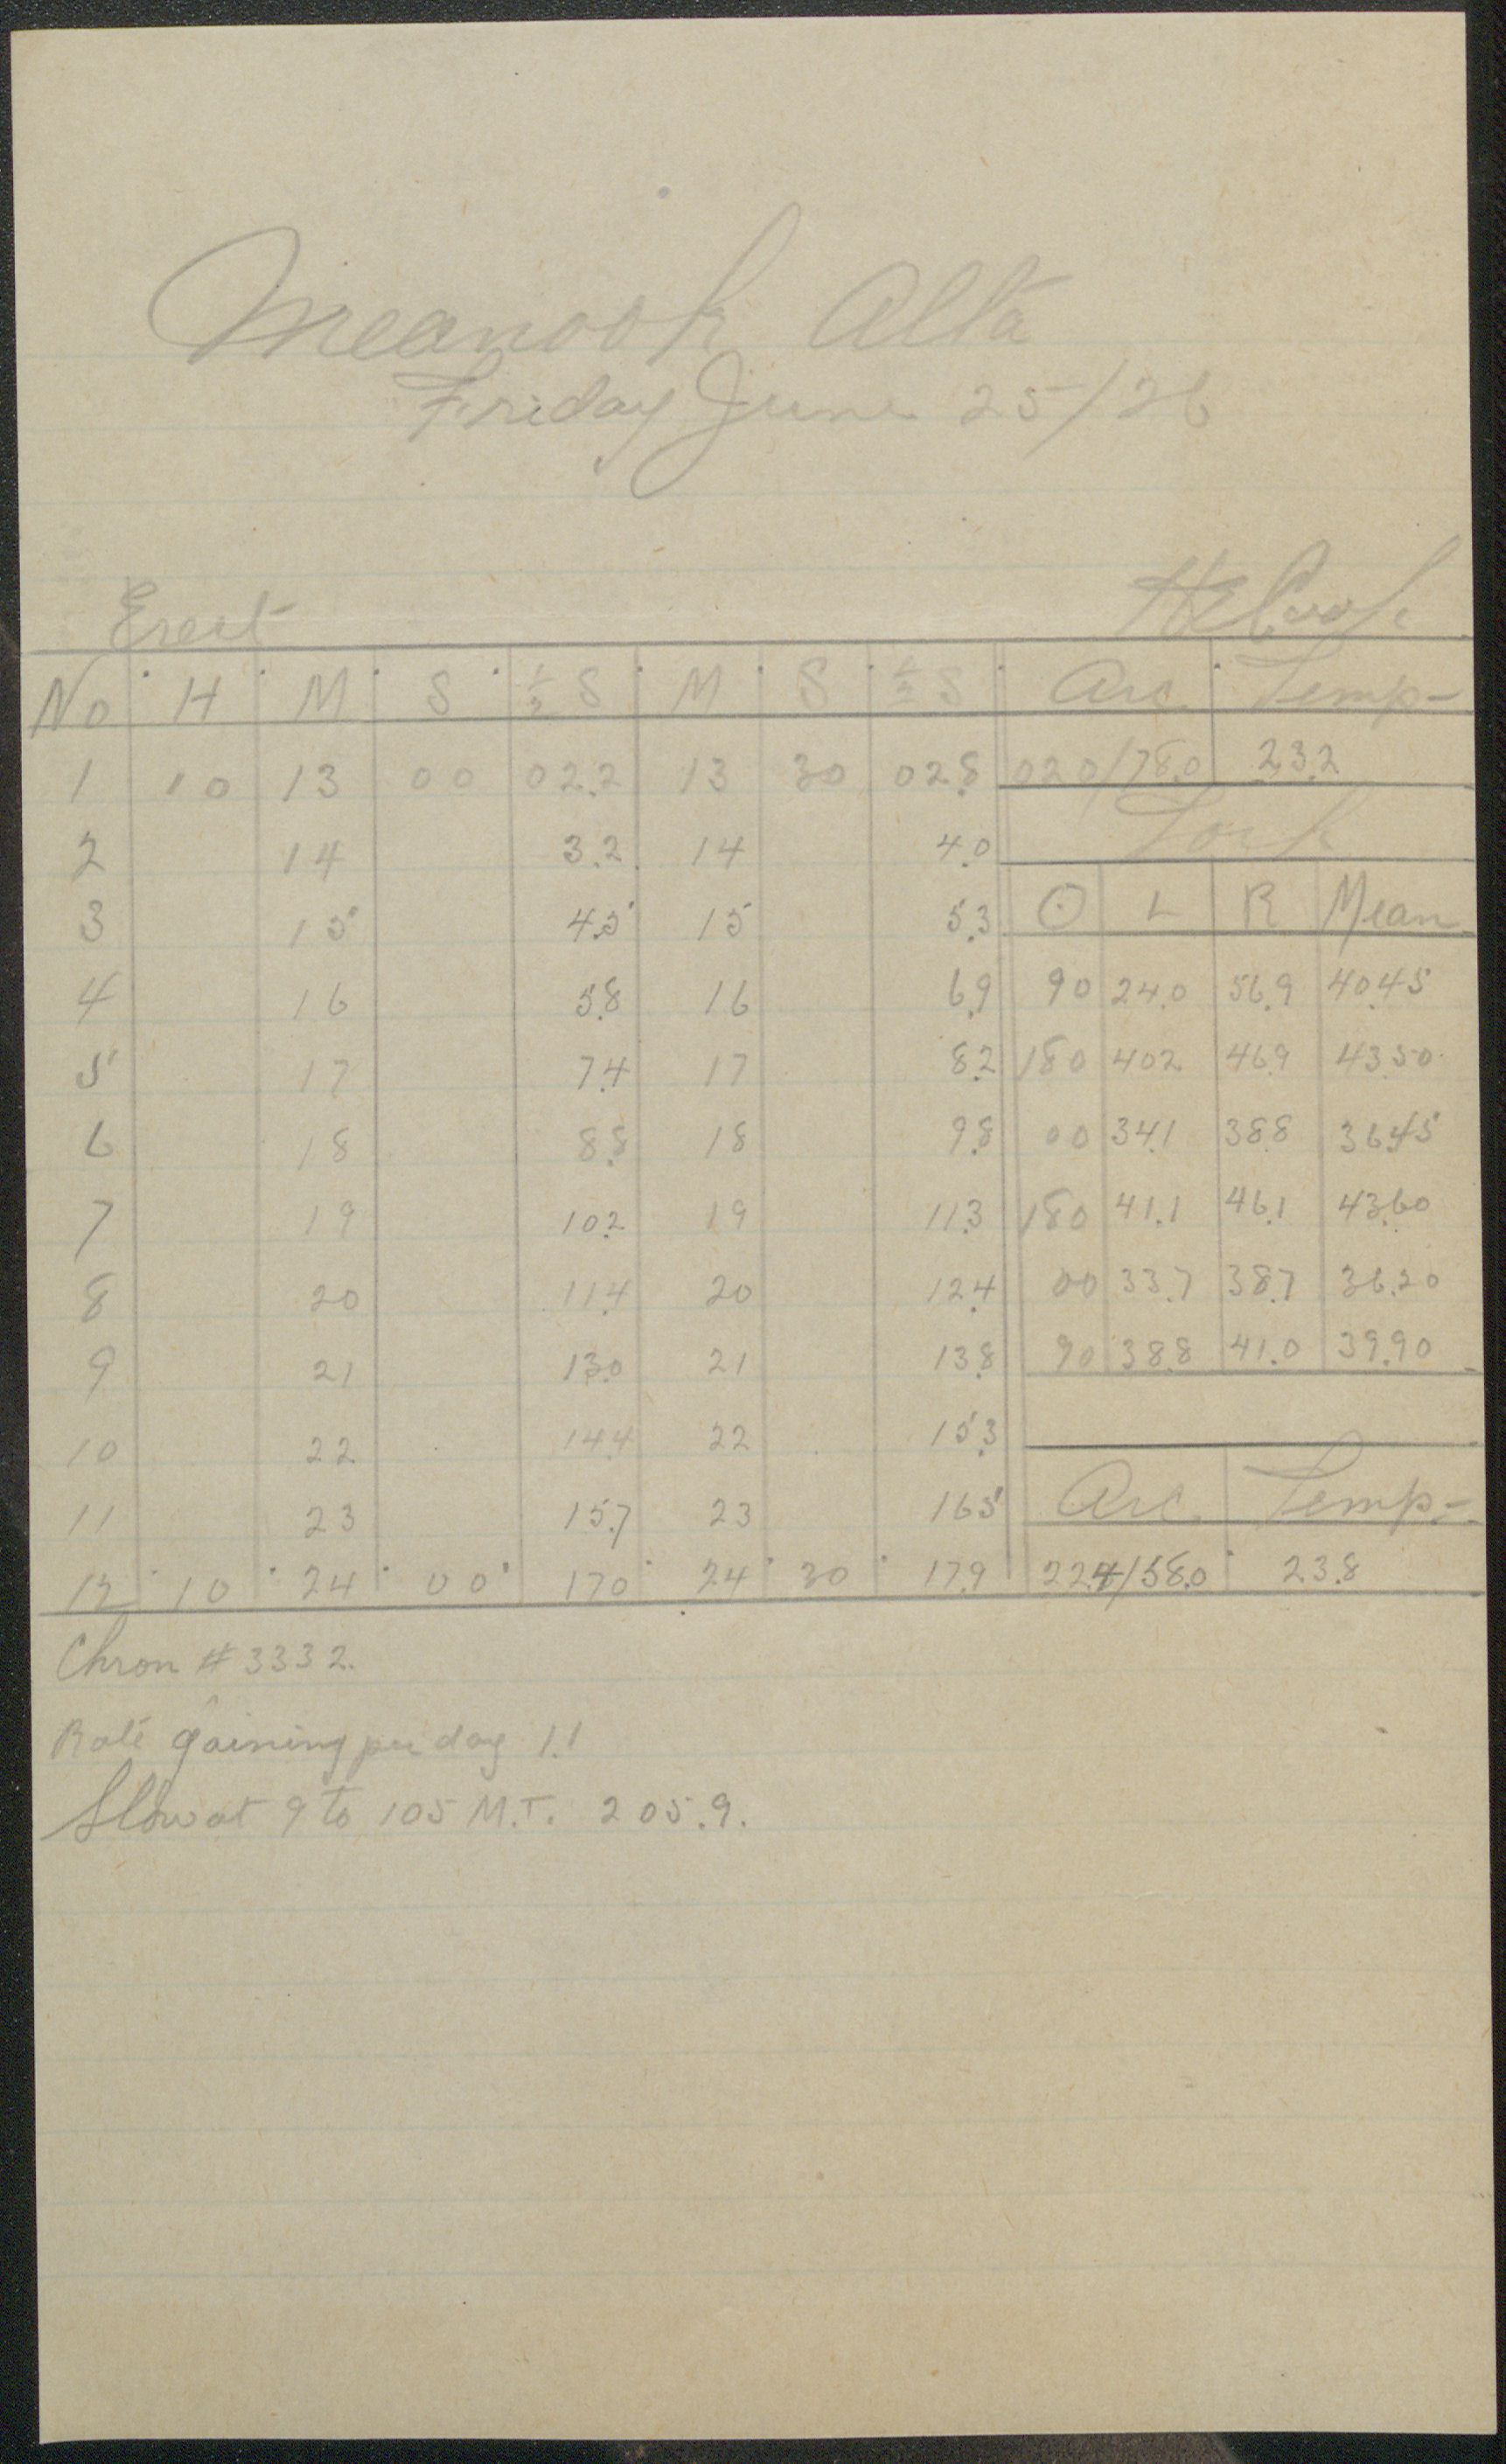 Meanook Alta
Friday June 25/26
Erect HECook
No H M S ½ S M S ½ S Arc Temp-
1 10 13 00 02.2 13 30 02.8 020/78.0 23.2
2 14 3.2 14 4.0 Tork
3 15 4.5 15 5.3 ⊙ L R Mean
4 16 5.8 16 6.9 90 24.0 56.9 40.45
5 17 7.4 17 8.2 180 40.2 46.9 43.50
6 18 8.8 18 9.8 00 34.1 38.8 36.45
7 19 10.2 19 11.3 180 41.1 46.1 43.60
8 20 11.4 20 12.4 00 33.7 38.7 36.20
9 21 13.0 21 13.8 90 38.8 41.0 39.90
10 22 14.4 22 15.3
11 23 15.7 23 16.5 Arc Temp-
12 10 24 00 17.0 24 30 17.9 22.4/58.0 23.8
Chron # 3332.
Rate gaining per day 1.1
Slow at 9 to 105 M.T. 205.9.